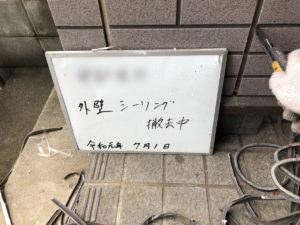 外壁 シーリング
撤去中
令和元年 7月1日